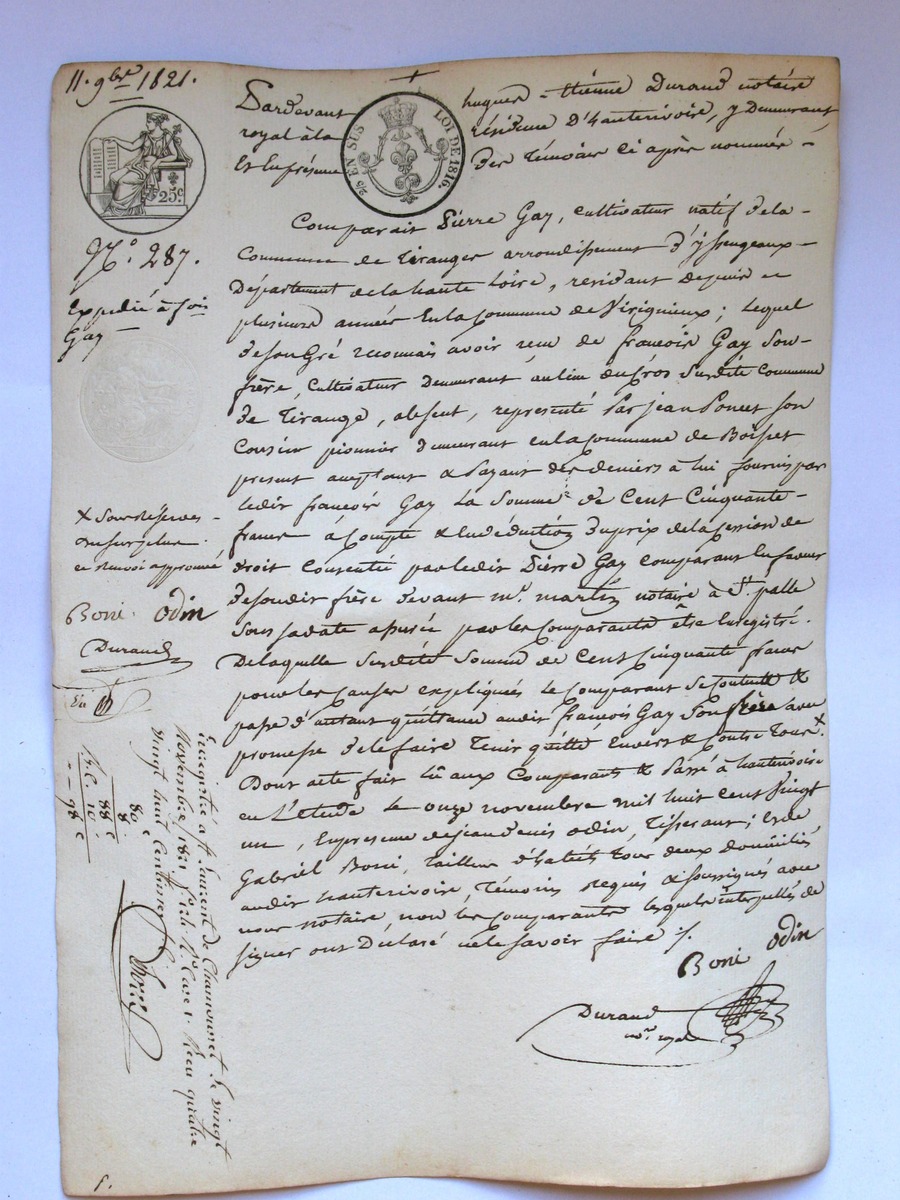 11. 9bre 1821.
25c.
25 EN SUS LOI DE 1816
Pardevant hugues = étienne Durand notaire
royal à la résidence D'hauterivoire, y Demeurant
Et En présence des Témoins ci après nommés =
N.o 287.
Expédié à soi
Gay
Comparait Pierre Gay, cultivateur natif de la =
Commune de Tiranges arrondissement d'yssengeaux =
Département de la haute Loire, résidant depuis
plusieurs années En la Commune de Virignieux; lequel
de son Gré reconnais avoir reçu de françois Gay Son =
frère, Cultivateur Demeurant au lieu du Cros Sus dite Commune
de Tirange, absent, représenté par jean Poncet son
Cousin pionnier demeurant en la Commune de Boisset
present acceptant & Payant des deniers à lui fournis par
ledit françois Gay La Somme de Cent Cinquante =
francs à Compte & En deduction du prix de la cession de
droit Consentie par ledit Pierre Gay comparant En faveur
de son dit frère devant me. martin notaire à St. palle
Sous sa date assurée par les Comparants être Enregistré.
De laquelle Susdite Somme de Cent Cinquante francs
pour les causes expliqués le Comparant se Contente &
passe d'autant quittance audit françois Gay son frère avec
promesse de le faire Tenir quitte Envers & Contre Tous x.
Dont acte fait lû aux Comparants & Passé à hauterivoire
en L'étude le onze novembre mil huit cent Vingt
un, En presence de jean denis odin, Tisserant; Et de
Gabriel Boni, Tailleur d'habits tous deux domiciliés
audit hauterivoire, Témoins Requis & Soussignés avec
nous notaire, non les Comparants lesquels interpellés de
signer ont Déclaré ne le savoir faire ./.
Boni Odin
Durand
nore. royal
x Sous Réserves
du surplus
ce renvoi approuvé
Boni Odin
Durand
Enregistré à St. Laurent de Chamousset le vingt
Novembre 1821 Reçu quatre
Vingt huit Centimes
80 c
8
88 c
10
98 c